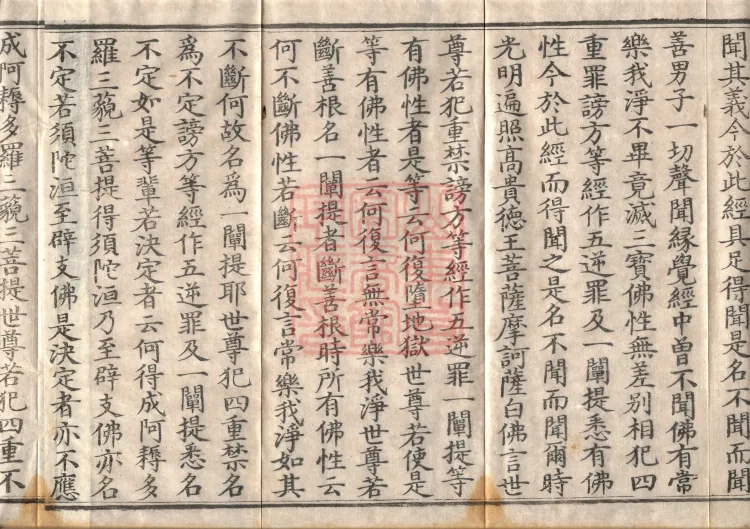 聞其義今於此經具足得聞是名不聞而聞
善男子一切聲聞緣覺經中曾不聞佛有常
樂我淨不畢竟滅三寶佛性無差別相犯四
重罪謗方等經作五逆罪及一闡提悉有佛
性今於此經而得聞之是名不聞而聞爾時
光明遍照高貴德王菩薩摩訶薩白佛言世
尊若犯重禁謗方等經作五逆罪一闡提等
有佛性者是等云何復墮地獄世尊若使是
等有佛性者云何復言無常樂我淨世尊若
斷善根名一闡提者斷善根時所有佛性云
何不斷佛性若斷云何復言常樂我淨如其
不斷何故名為一闡提耶世尊犯四重禁名
為不定謗方等經作五逆罪及一闡提悉名
不定如是等輩若決定者云何得成阿耨多
羅三藐三菩提得須陀洹乃至辟支佛亦名
不定若須陀洹至辟支佛是決定者亦不應
成阿耨多羅三藐三菩提世尊若犯四重不